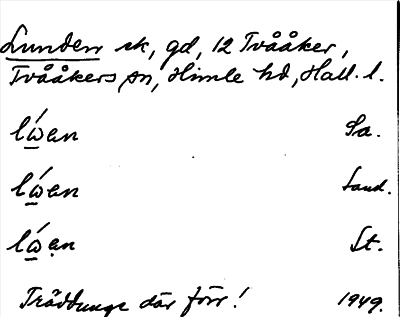 Lunden sk, gd, 12 Tvååker,
Tvååkers sn, Himle hd, Hall. l.
lώen Sa.
lώen Sand.
lώẹn St.
Träddunge där förr! 1949.